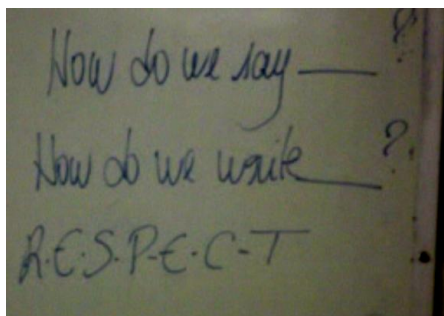 How do we say ___ ?
How do we write ___ ?
R.E.S.P.E.C.T